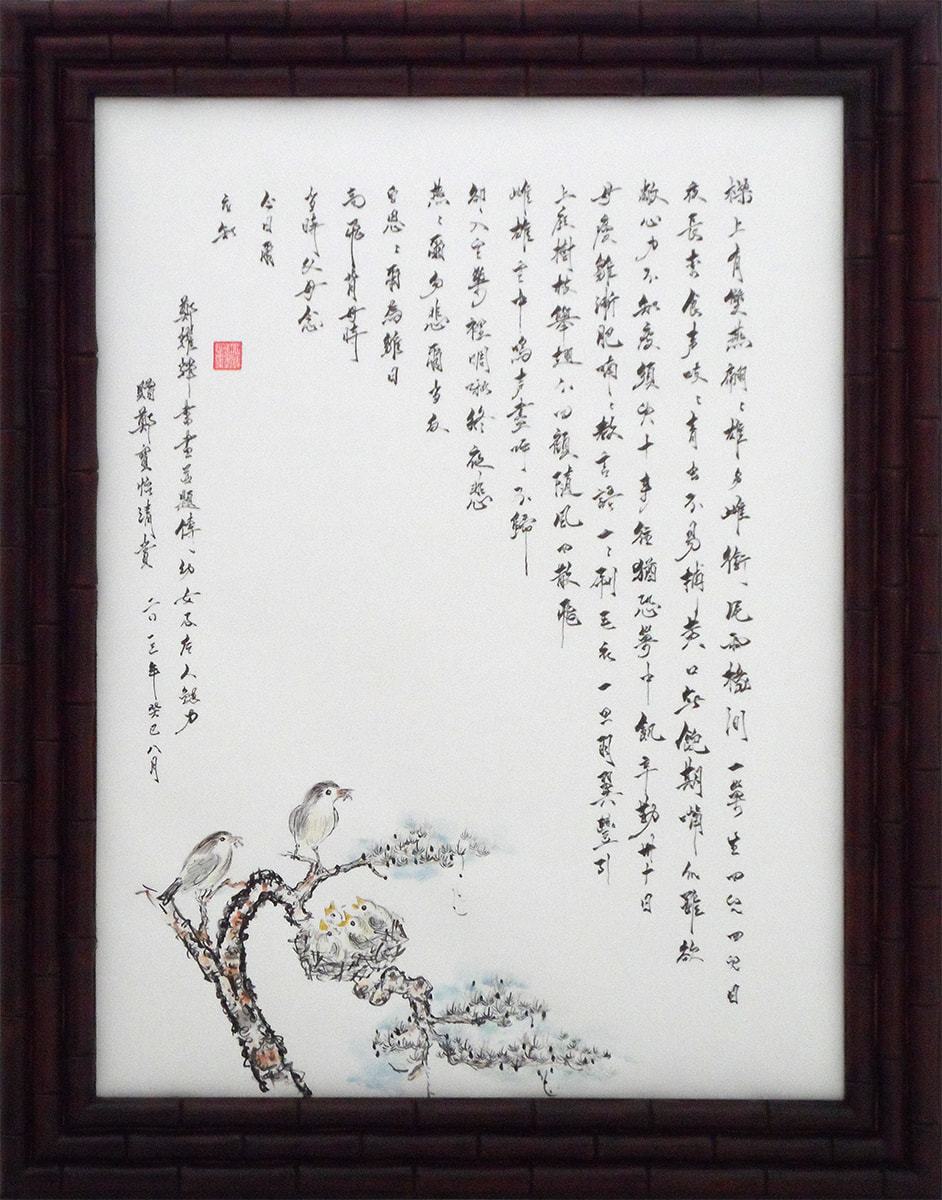 樑上有雙燕翩〻雄与雌銜泥兩椽間一巢生四兒四兒日
夜長索食声吱〻青虫不易捕黃口無飽期嘴爪雖欲
敝心力不知疲須臾十來往猶恐巢中飢辛勤卅十日
母瘦雛漸肥喃〻教言語一〻刷毛衣一旦羽翼豐引
上庭樹枝舉翅不回顧隨風四散飛
雌雄空中鳴声盡呼不歸
卻入空巢裡啁啾終夜悲
燕〻爾勿悲爾當反
自思〻爾為雛日
高飛背母時
當時父母念
今日爾
應知
鄭耀輝書畫並題
贈鄭寶怡清賞 二〇一三年癸巳八月